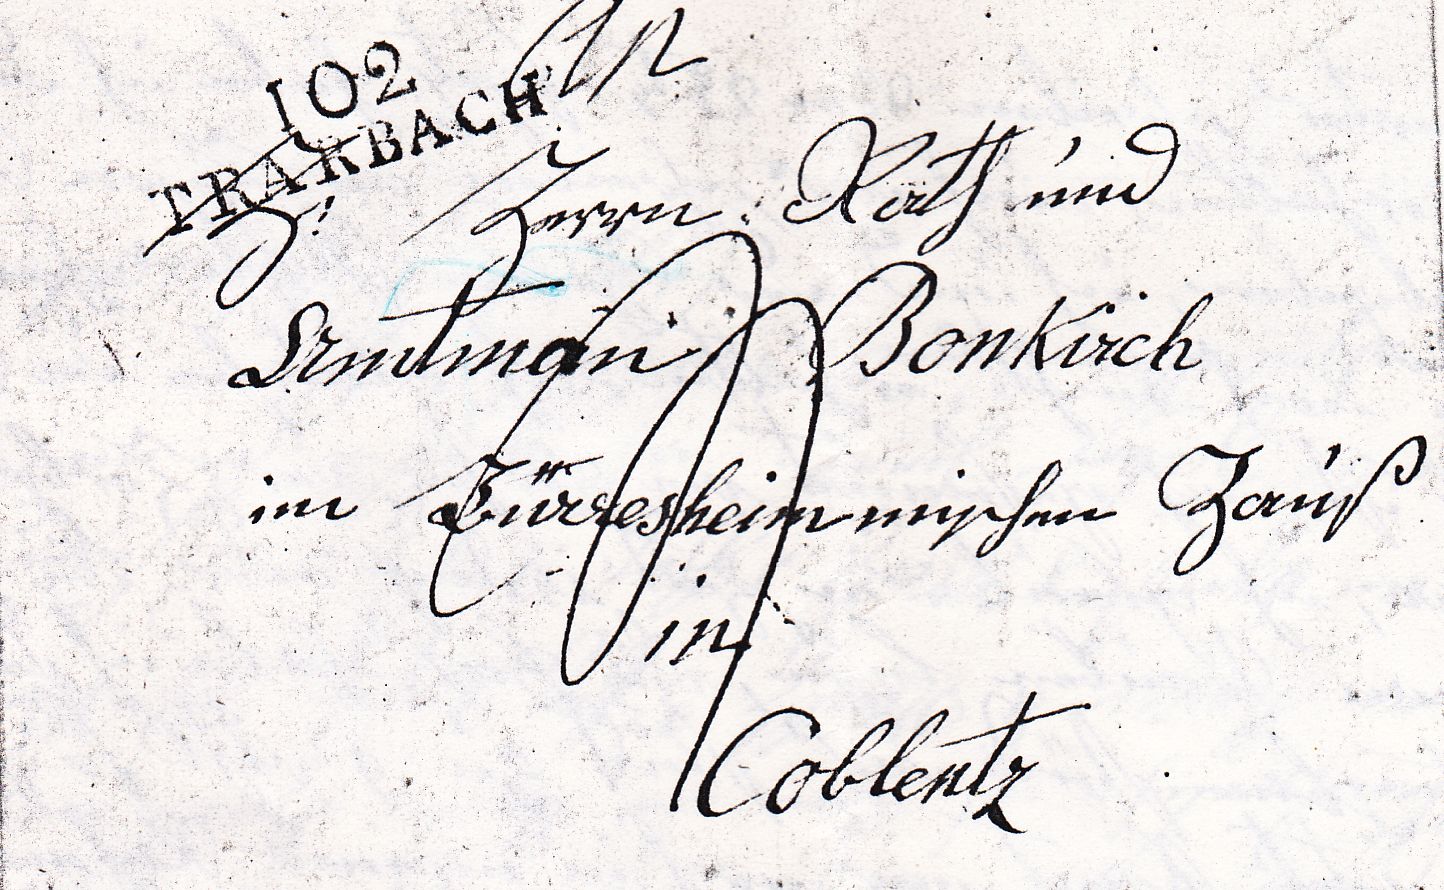 An
102
TRARBACH
Herrn Rath und
Amtman Bonkirch
im Bürresheimmischen Hauß
in
Coblentz